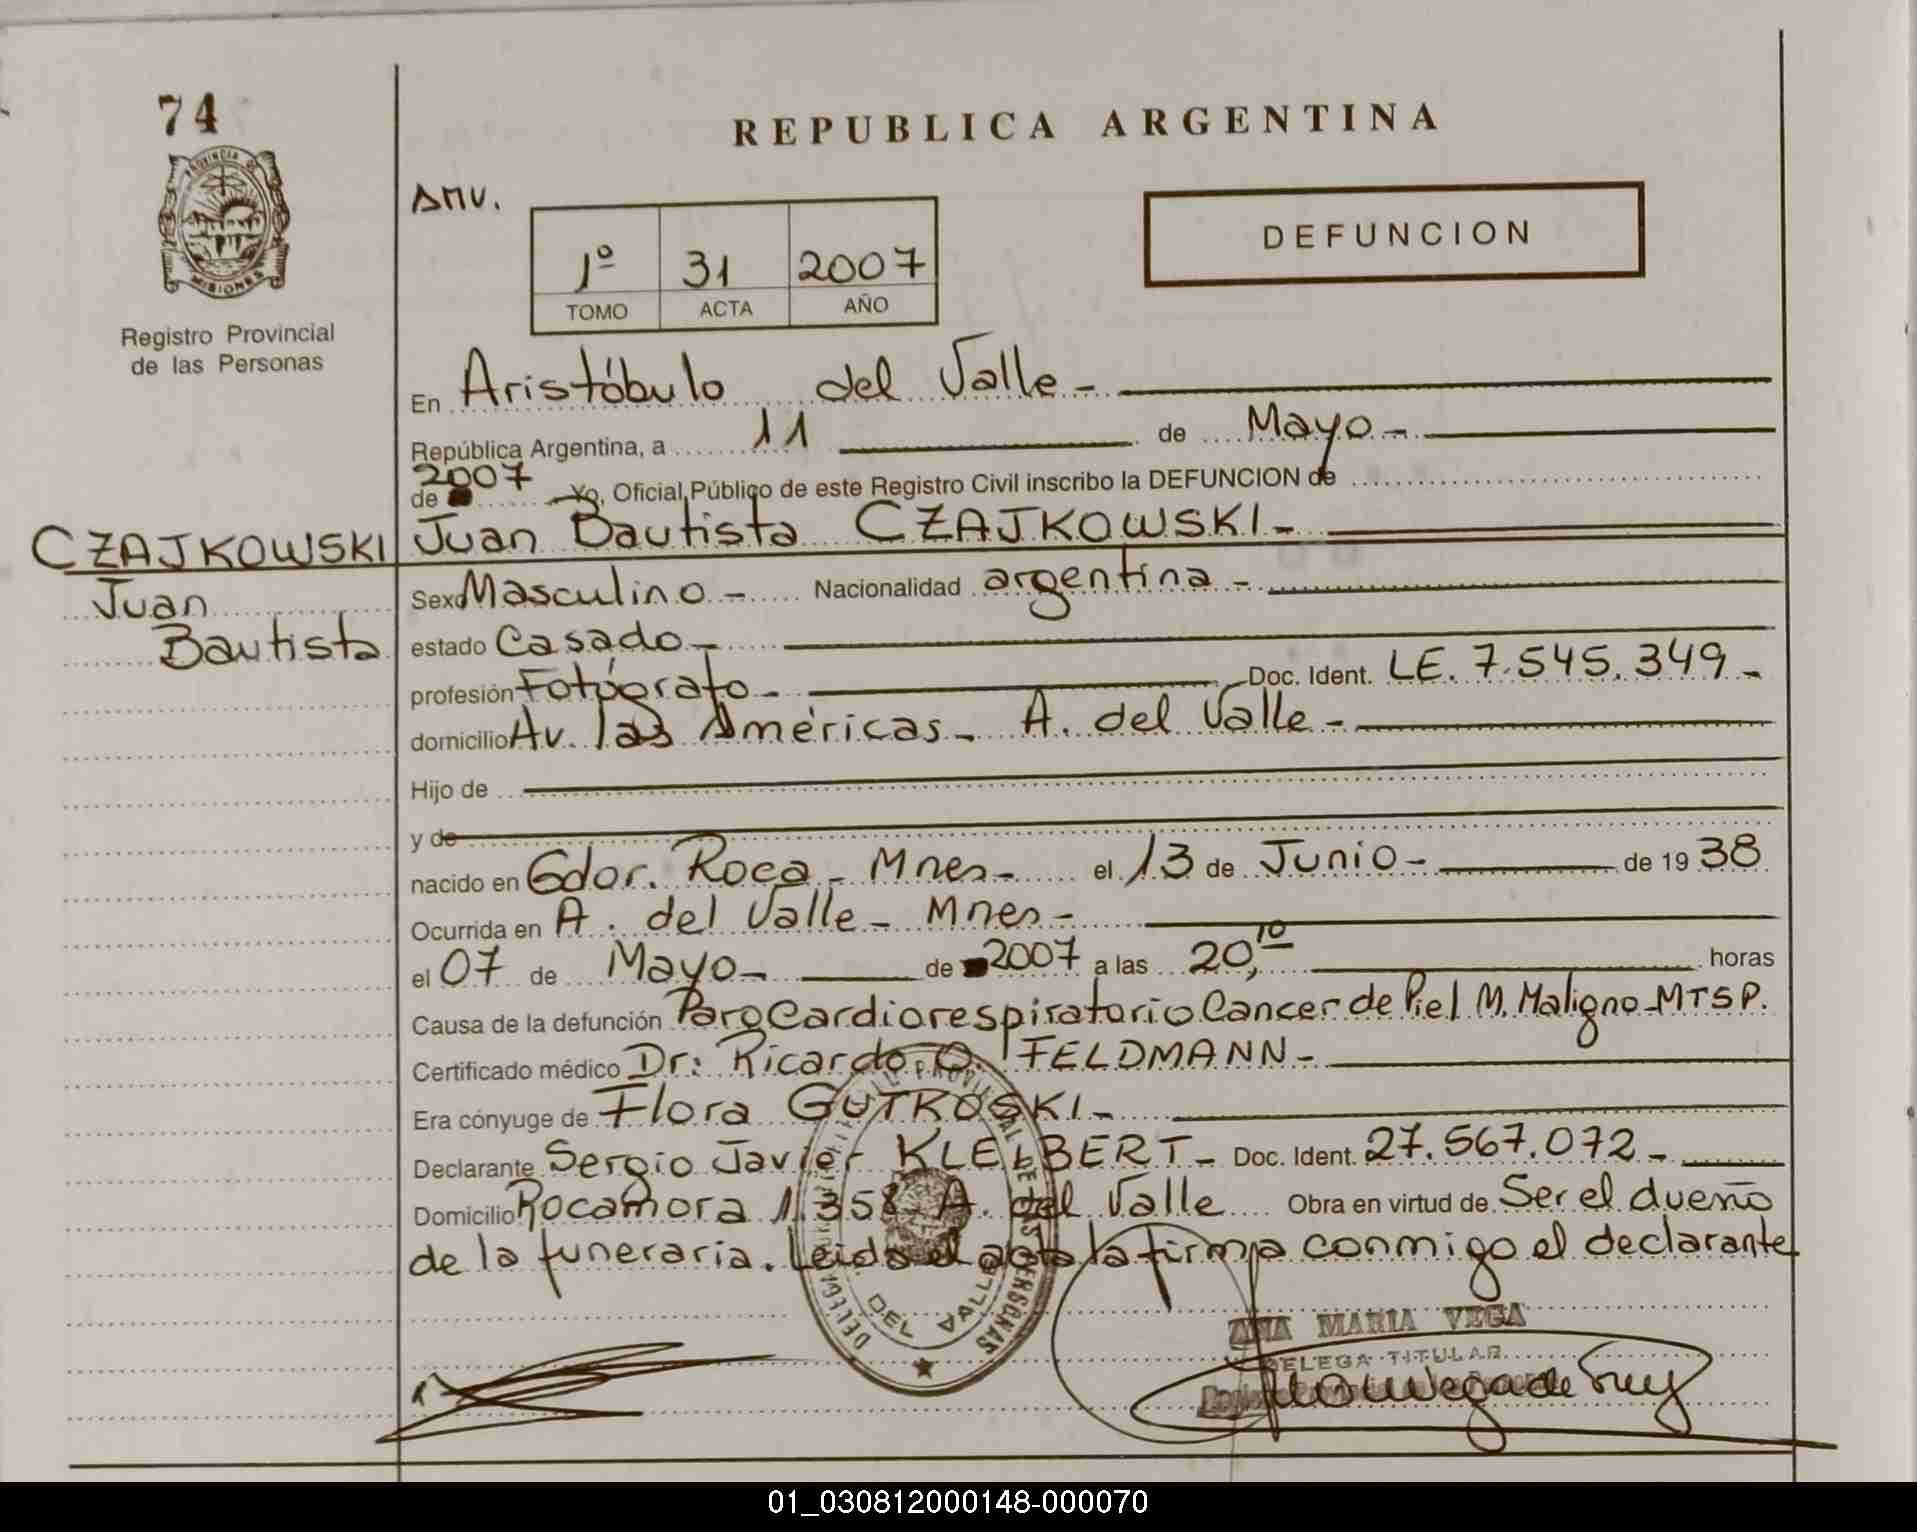 74
REPUBLICA ARGENTINA
PROVINCIA DE
MISIONES
Registro Provincial
de las Personas
AMV.
1º 31 2007
TOMO ACTA AÑO
DEFUNCION
En Aristóbulo del Valle -
República Argentina, a 11 de Mayo -
de 2007 Yo, Oficial Público de este Registro Civil inscribo la DEFUNCION de
CZAJKOWSKI Juan Bautista CZAJKOWSKI -
Juan Sexo Masculino - Nacionalidad argentina -
Bautista estado Casado -
profesión Fotógrafo - Doc. Ident. LE. 7.545.349 -
domicilio Av. las Américas - A. del Valle -
Hijo de
y de
nacido en Gdor. Roca - Mnes - el 13 de Junio - de 1938
Ocurrida en A. del Valle - Mnes -
el 07 de Mayo - de 2007 a las 20,10 horas
Causa de la defunción Paro Cardiorespiratorio Cancer de Piel M. Maligno - MTSP.
Certificado médico Dr: Ricardo O. FELDMANN -
Era cónyuge de Flora GUTKOSKI -
Declarante Sergio Javier KLEIBERT - Doc. Ident. 27.567.072 -
Domicilio Rocamora 1.358 A. del Valle Obra en virtud de Ser el dueño
de la funeraria. Leida el acta la firma conmigo el declarante
DEL VALLE
ANA MARIA VEGA
DELEGA TITULAR
01_030812000148-000070